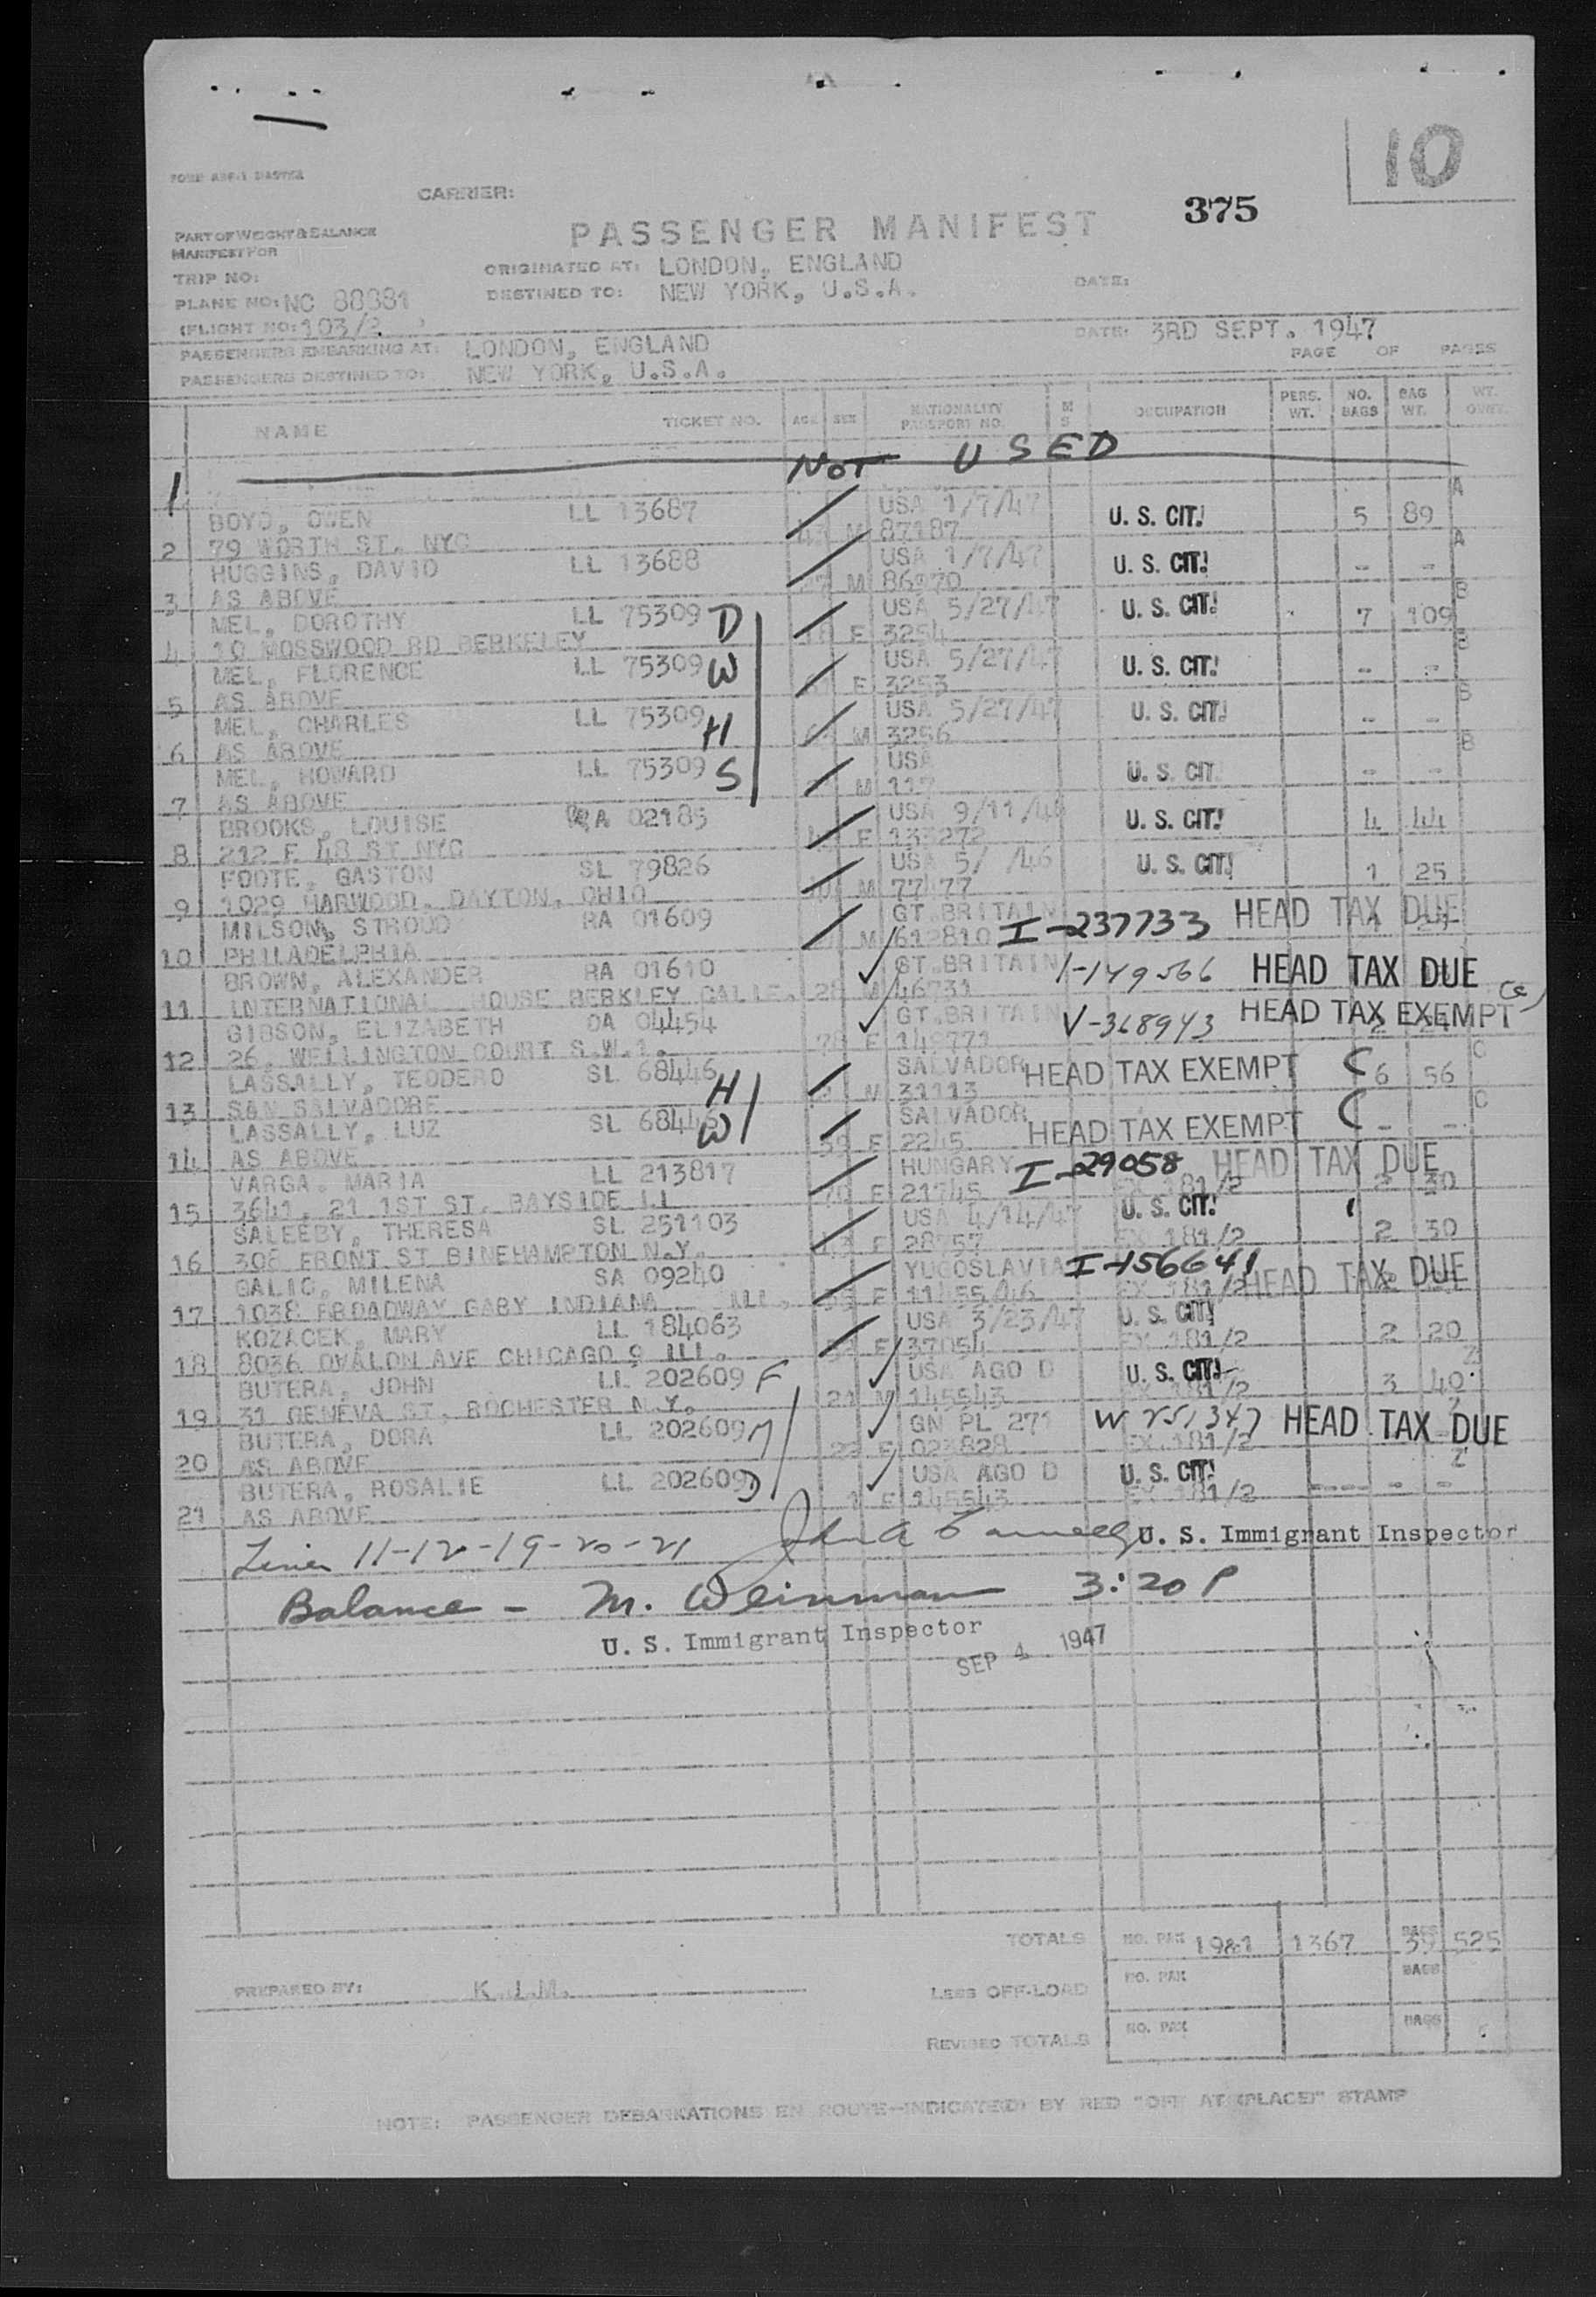 10
CARRIER:
375
PASSENGER MANIFEST
PART OF WEIGHT & BALANCE
MANIFEST FOR
ORIGINATED AT: LONDON, ENGLAND
TRIP NO:
DESTINED TO: NEW YORK, U.S.A.
DATE:
PLANE NO: NC 88881
(FLIGHT NO: 103/2 )
DATE: 3RD SEPT. 1947
PASSENGERS EMBARKING AT: LONDON, ENGLAND
PAGE OF PAGES
PASSENGERS DESTINED TO: NEW YORK, U.S.A.
NAME TICKET NO. AGE SEX NATIONALITY PASSPORT NO. M S OCCUPATION PERS. WT. NO. BAGS BAG WT. WT.
1 NOT USED
BOYD, OWEN LL 13687 USA 1/7/47 U. S. CIT. 5 89 A
2 79 WORTH ST. NYC M 87187
HUGGINS, DAVID LL 13688 USA 1/7/47 U. S. CIT. - - A
3 AS ABOVE 27 M 86970
MEL, DOROTHY LL 75309 D USA 5/27/47 U. S. CIT. 7 109 B
4 10 MOSSWOOD RD BERKELEY F 3254
MEL, FLORENCE LL 75309 W USA 5/27/47 U. S. CIT. - - B
5 AS ABOVE F 3253
MEL, CHARLES LL 75309 H USA 5/27/47 U. S. CIT. - -
6 AS ABOVE M 3256
MEL, HOWARD LL 75309 S USA U. S. CIT. - - B
7 AS ABOVE M 117
BROOKS, LOUISE RA 02185 USA 9/11/46 U. S. CIT. 4 44
8 212 E 48 ST NYC F 133272
FOOTE, GASTON SL 79826 USA 5/ /46 U. S. CIT. 1 25
9 1029 HARWOOD, DAYTON, OHIO M 77477
MILSON, STROUD RA 01609 GT BRITAIN HEAD TAX DUE
10 PHILADELPHIA M 612810 I-237733
BROWN, ALEXANDER RA 01610 GT.BRITAIN I-149566 HEAD TAX DUE
11 INTERNATIONAL HOUSE BERKLEY CALIF. 28 M 46731
GIBSON, ELIZABETH OA 04454 GT.BRITAIN V-368943 HEAD TAX EXEMPT
12 26, WELLINGTON COURT S.W.1. F 149771
LASSALLY, TEODDERO SL 68446 H SALVADOR HEAD TAX EXEMPT C 6 56 C
13 SAN SALVADORE M 31113
LASSALLY, LUZ SL 68446 W SALVADOR HEAD TAX EXEMPT C - - C
14 AS ABOVE 39 F 2245
VARGA, MARIA LL 213817 HUNGARY I-29058 HEAD TAX DUE
15 3641, 21 1ST ST. BAYSIDE LI F 21745 EX 181/2 2 30
SALEEBY, THERESA SL 251103 USA 4/14/47 U. S. CIT.
16 308 FRONT ST BINEHAMPTON N.Y. F 28757 EX 181/2 2 30
GALIC, MILENA SA 09240 YUGOSLAVIA I-156641 HEAD TAX DUE
17 1038 BROADWAY GARY INDIANA ILL. F 11455/46 EX 181/2
KOZACEK, MARY LL 184063 USA 3/23/47 U. S. CIT.
18 8036 AVALON AVE CHICAGO 9 ILL. F 37054 EX 181/2 2 20
BUTERA, JOHN LL 202609 F USA AGO D U. S. CIT. Z
19 31 GENEVA ST. ROCHESTER N.Y. 21 M 145543 EX 181/2 3 40
BUTERA, DORA LL 202609 M GN PL 271 HEAD TAX DUE
20 AS ABOVE F 023828 EX 181/2
BUTERA, ROSALIE LL 202609 D USA AGO D U. S. CIT. Z
21 AS ABOVE 1 F 145543 EX 181/2 - -
Lines 11-12-19-20-21 John A U. S. Immigrant Inspector
Balance - M. Weinman 3:20 P
U. S. Immigrant Inspector
SEP 4 1947
TOTALS NO. PAX 19&1 1367 BAGS 39 525
PREPARED BY: K.L.M.
LESS OFF-LOAD NO. PAX BAGS
REVISED TOTALS NO. PAX BAGS
NOTE: PASSENGER DEBARKATIONS EN ROUTE-INDICATED BY RED "OFF AT (PLACE)" STAMP